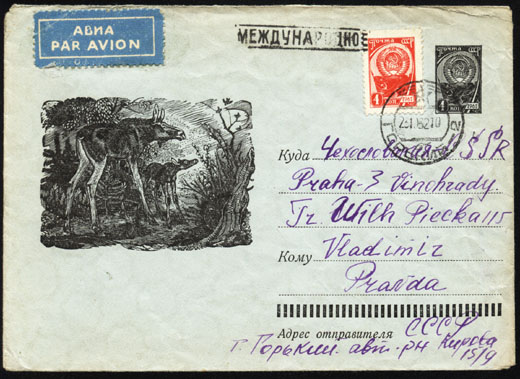 АВИА
PAR AVION
МЕЖДУНАРОДНОЕ
ПОЧТА СССР
4 КОП
4 КОП
23.1.62 10
Куда Чехословакия ČSSR
Praha-3 Vinohrady
Tr Wilh Piecka 115
Кому Vladimir
Pravda
Адрес отправителя СССР
г. Горький авт. р-н Кирова
15/9